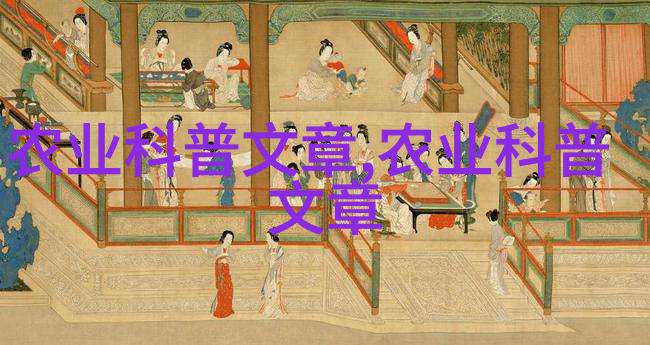 农业科普文章,农业科普
文章